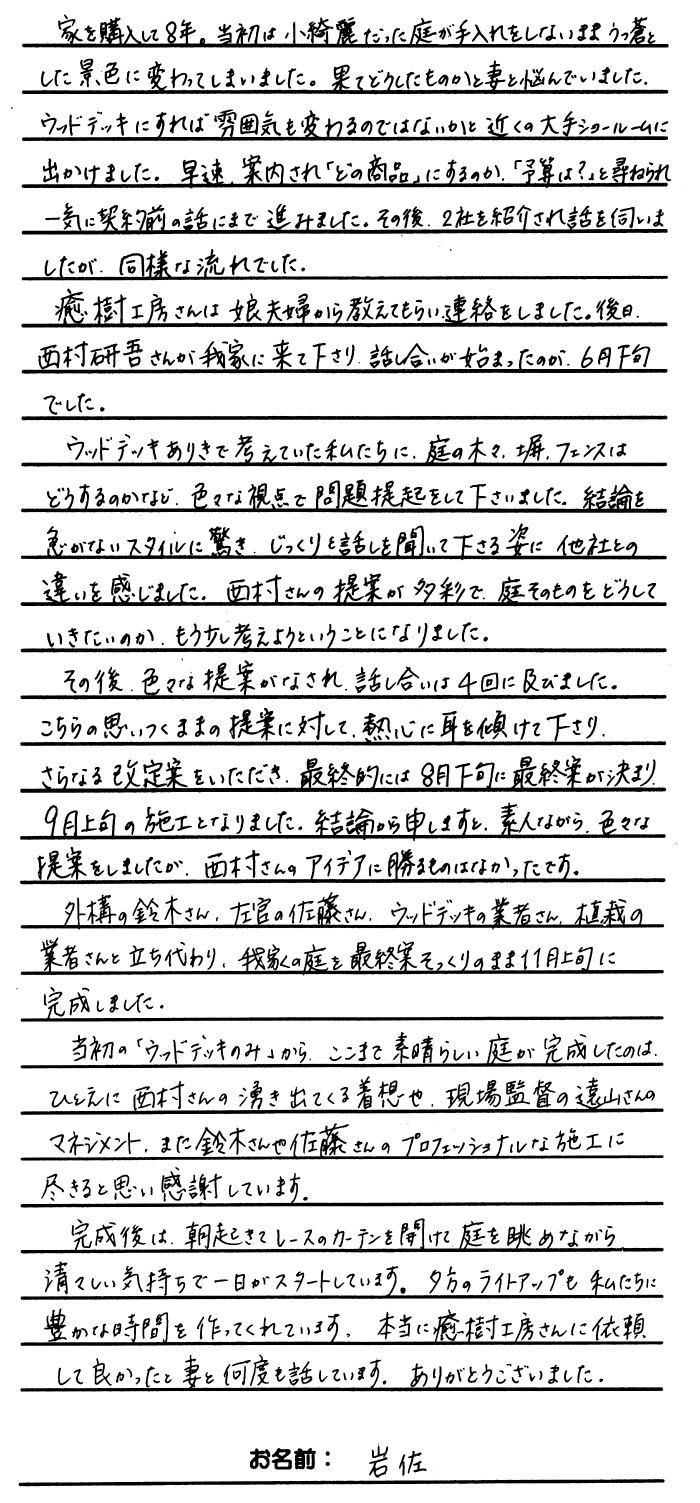 家を購入して8年。当初は小綺麗だった庭が手入れをしないままうっ蒼と
した景色に変わってしまいました。果てどうしたものかと妻と悩んでいました。
ウッドデッキにすれば雰囲気も変わるのではないかと近くの大手ショールームに
出かけました。早速、案内され「どの商品」にするのか、「予算は?」と尋ねられ
一気に契約前の話にまで進みました。その後、2社を紹介され話を伺いま
したが、同様な流れでした。
癒樹工房さんは娘夫婦から教えてもらい連絡をしました。後日、
西村研吾さんが我家に来て下さり、話し合いが始まったのが、6月下旬
でした。
ウッドデッキありきで考えていた私たちに、庭の木々、塀、フェンスは
どうするのかなど、色々な視点で問題提起をして下さいました。結論を
急がないスタイルに驚き、じっくりと話しを聞いて下さる姿に他社との
違いを感じました。西村さんの提案が多彩で、庭そのものをどうして
いきたいのか、もう少し考えようということになりました。
その後、色々な提案がなされ、話し合いは4回に及びました。
こちらの思いつくままの提案に対して、熱心に耳を傾けて下さり、
さらなる改定案をいただき、最終的には8月下旬に最終案が決まり、
9月上旬の施工となりました。結論から申しますと、素人ながら、色々な
提案をしましたが、西村さんのアイデアに勝るものはなかったです。
外構の鈴木さん、左官の佐藤さん、ウッドデッキの業者さん、植栽の
業者さんと立ち代わり、我家の庭を最終案そっくりのまま11月上旬に
完成しました。
当初の「ウッドデッキのみ」から、ここまで素晴らしい庭が完成したのは、
ひとえに西村さんの湧き出てくる着想や、現場監督の遠山さんの
マネジメント、また鈴木さんや佐藤さんのプロフェッショナルな施工に
尽きると思い感謝しています。
完成後は、朝起きてレースのカーテンを開けて庭を眺めながら
清々しい気持ちで一日がスタートしています。夕方のライトアップも私たちに
豊かな時間を作ってくれています。本当に癒樹工房さんに依頼
して良かったと妻と何度も話しています。ありがとうございました。
お名前: 岩佐